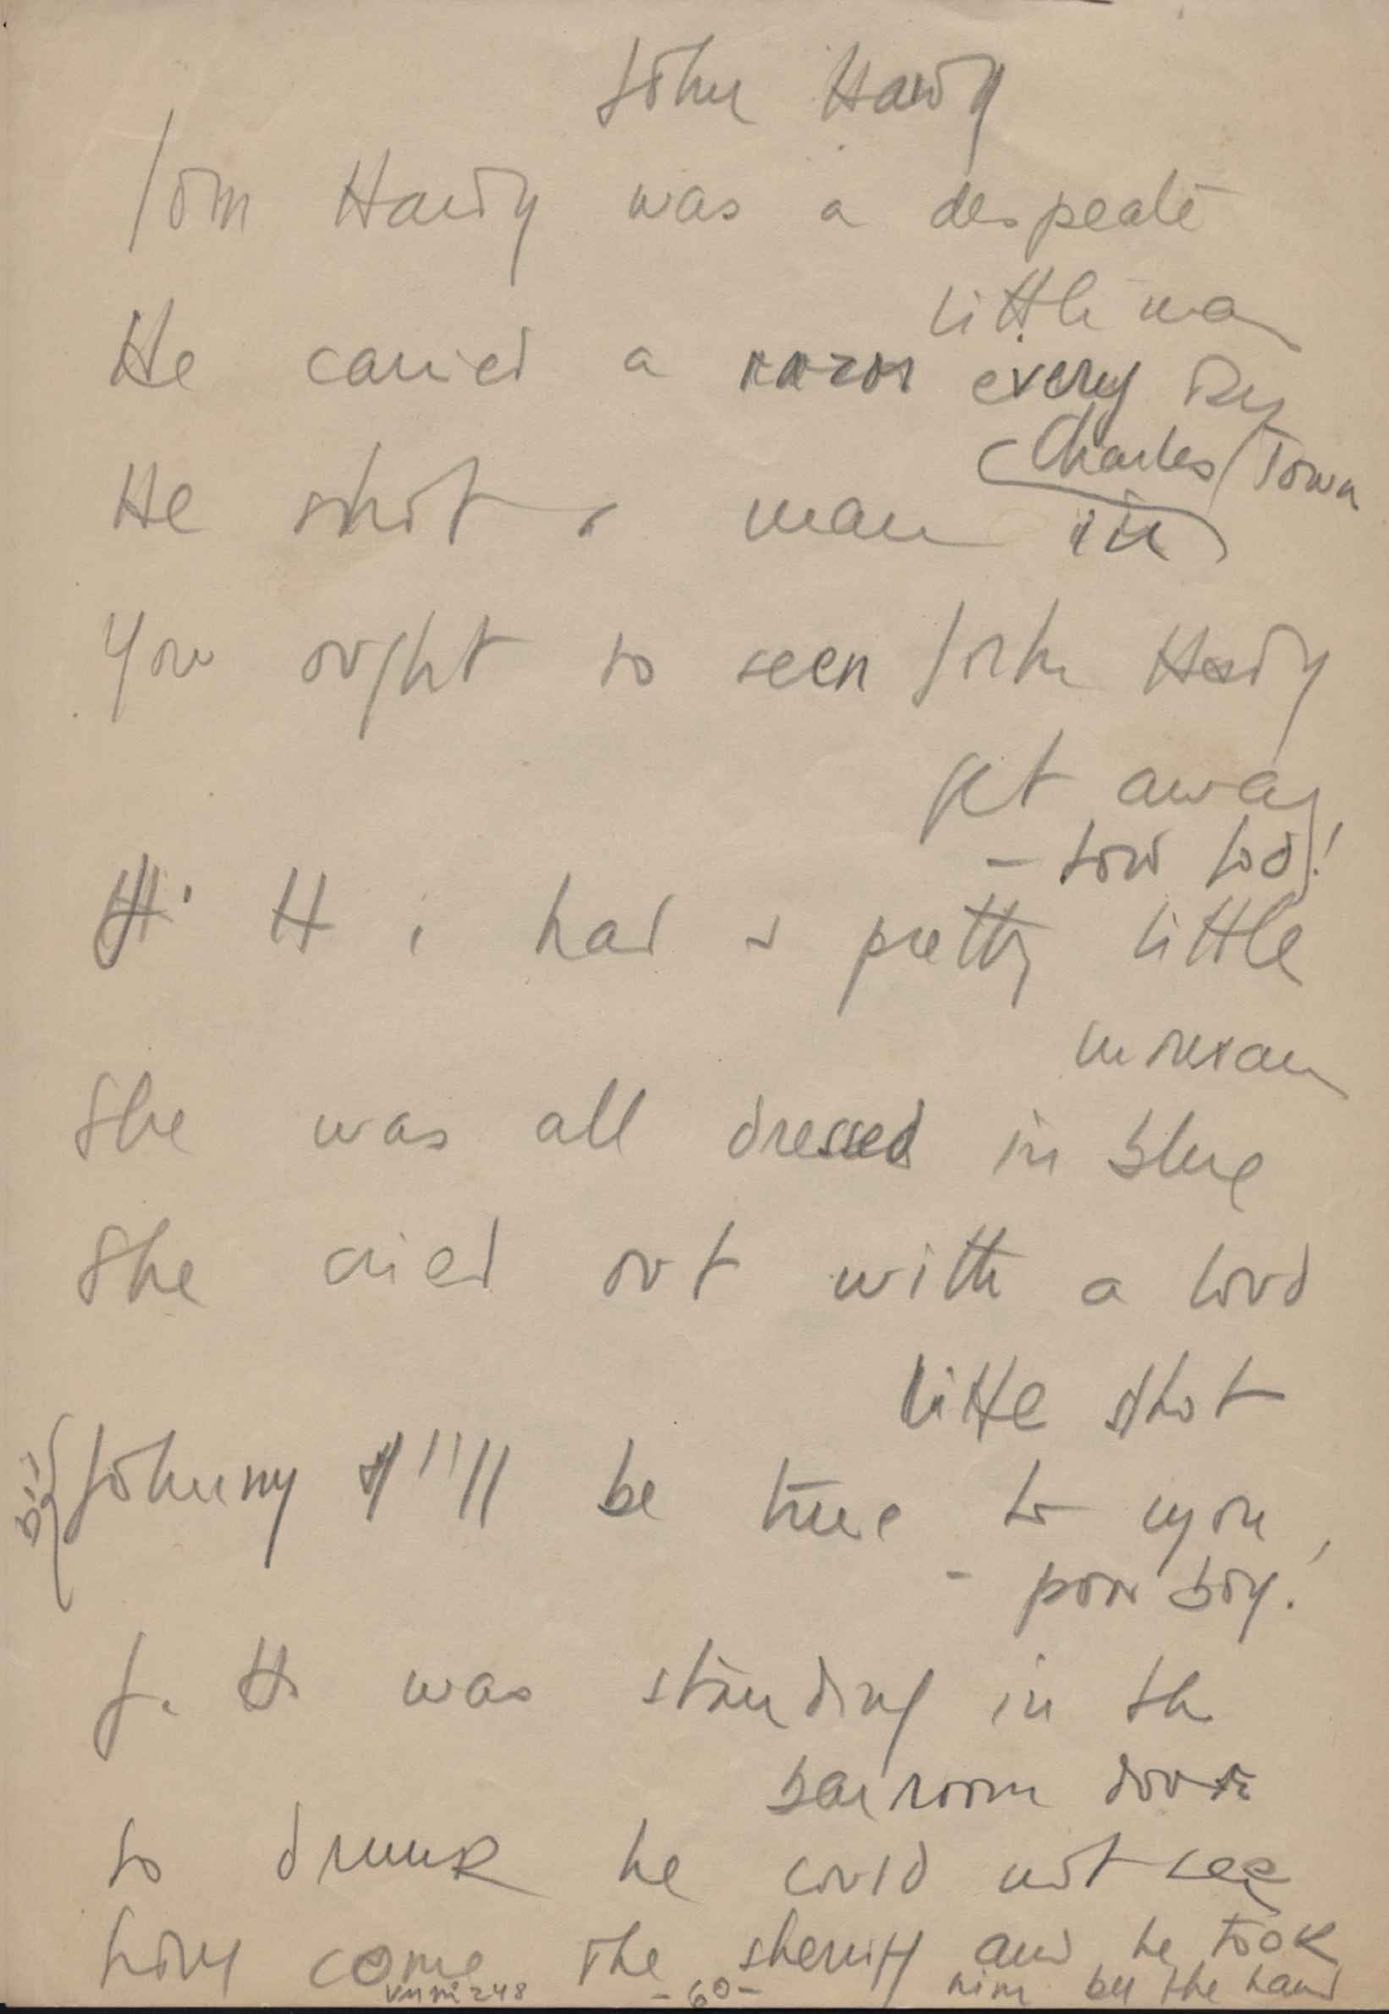 John Hardy
John Hardy was a despeate
little man
He caried a razor every Day
He shot a man in
Charles Town
You ought to seen John Hardy
get away
- Low Lod!
H i had a pretty little
woman
She was all dressed in blue
She cried out with a loud
little shot
Johnny I''ll be true to you,
- poor boy!
J. H. was standing in the
bar room door
so drunk he could not see
come the sheriff and he took
him by the hand
- 60 -